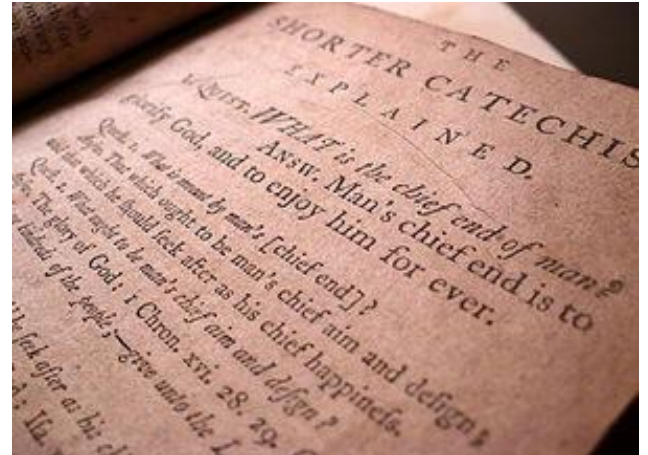 THE
SHORTER CATECHIS
EXPLAINED.
1. QUEST. WHAT is the chief end of man?
ANSW. Man's chief end is to
glorify God, and to enjoy him for ever.
Quest. 1. What is meant by man's [chief end]?
Answ. That which ought to be man's chief aim and deſign;
and that which he ſhould ſeek after as his chief happineſs.
Quest. 2. What ought to be man's chief aim and deſign?
Answ. The glory of God: 1 Chron. xvi. 28. 29.
kindreds of the people,—give unto the
he ſeek after as his